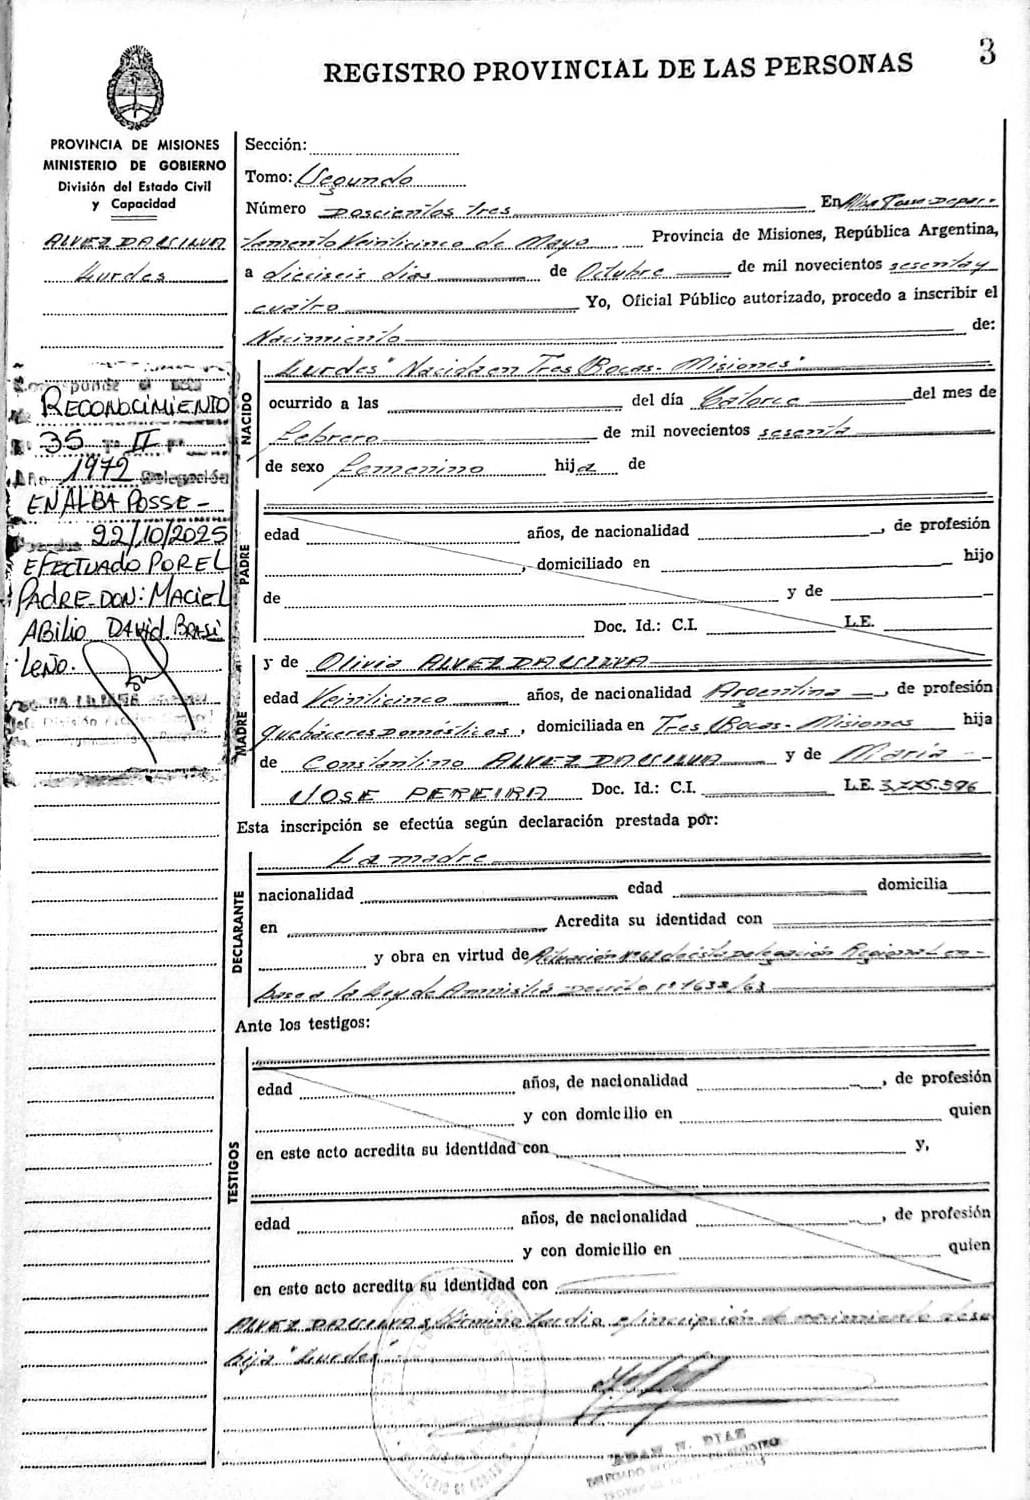 3
REGISTRO PROVINCIAL DE LAS PERSONAS
PROVINCIA DE MISIONES
MINISTERIO DE GOBIERNO
División del Estado Civil
y Capacidad
ALVEZ DA SILVA
Lurdes
Corresponde el
RECONOCIMIENTO
35 II
Año 1972 Delegación
EN ALBA POSSE -
22/10/2025
EFECTUADO POR EL
PADRE DON: MACIEL
ABILIO DAVID. BRASI
LEÑO.
Sección:
Tomo: Segundo
Número Doscientos tres En Alba Posse Depar-
tamento Veinticinco de Mayo Provincia de Misiones, República Argentina,
a dieciseis dias de Octubre de mil novecientos sesenta y
cuatro Yo, Oficial Público autorizado, procedo a inscribir el
Nacimiento de:
NACIDO
Lurdes" Nacida en Tres Bocas - Misiones"
ocurrido a las del día Catorce del mes de
Febrero de mil novecientos sesenta
de sexo femenino hija de
PADRE
edad años, de nacionalidad , de profesión
, domiciliado en hijo
de y de
Doc. Id.: C.I. L.E.
MADRE
y de Olivia ALVEZ DA SILVA
edad Veinticinco años, de nacionalidad Argentina , de profesión
Quehaceres Domésticos, domiciliada en Tres Bocas - Misiones hija
de Constantino ALVEZ DA SILVA y de María
JOSE PEREIRA Doc. Id.: C.I. L.E. 3.775.596
Esta inscripción se efectúa según declaración prestada por:
DECLARANTE
La madre
nacionalidad edad domicilia
en Acredita su identidad con
y obra en virtud de Actuación Nº 62 de esta Delegación Regional en
base a la Ley de Amnistía Decreto nº 1632/63
Ante los testigos:
TESTIGOS
edad años, de nacionalidad , de profesión
y con domicilio en quien
en este acto acredita su identidad con y,
edad años, de nacionalidad , de profesión
y con domicilio en quien
en este acto acredita su identidad con
ALVEZ DA SILVA s/ término tardio s/ inscripción de nacimiento de su
hija "Lurdes"
N. DIAZ